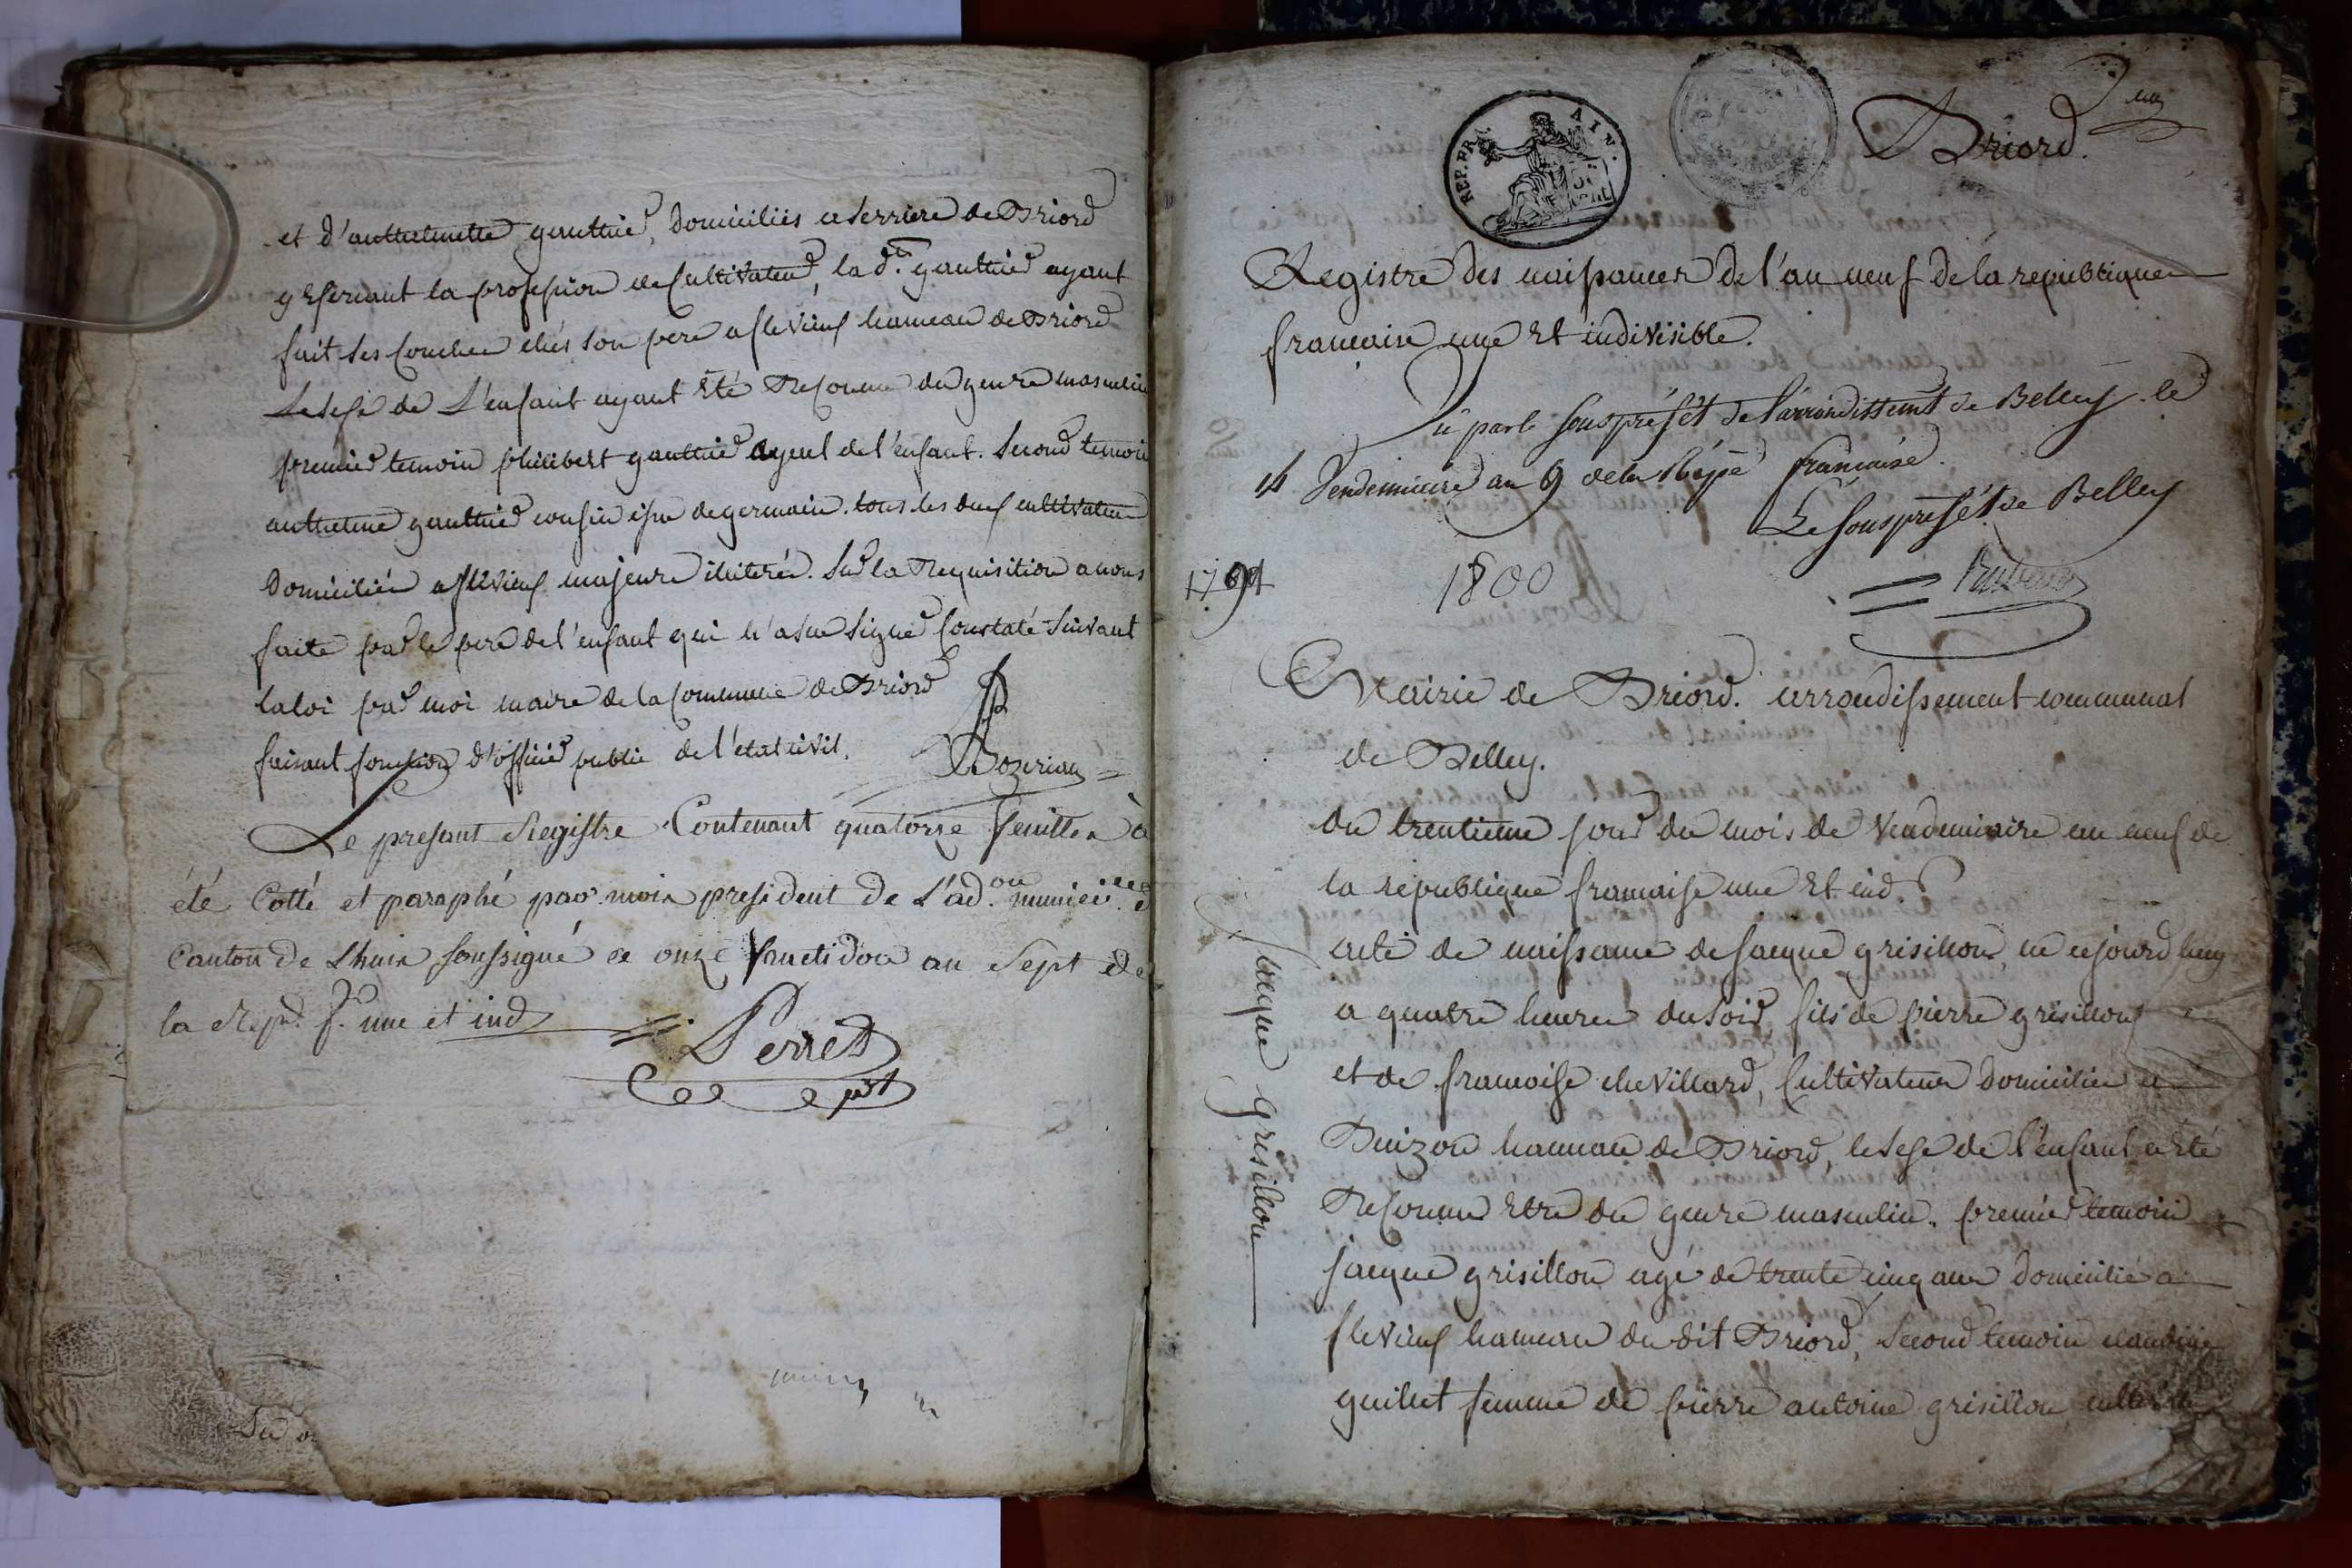 et d'anthelmette gauthier, domiciliés a Serriere de Briord
y Exerceant la profession de Cultivateur, la d.te gauthier ayant
fait ses Couches chés son pere a flevieux hameau de Briord
Le sexe de L'enfant ayant Eté Reconnu du genre masculin
premier temoin philibert gauthier ayeul de l'enfant. Second temoin
anthelme gauthier cousin issu de germain. tous les deux cultivateurs
Domiciliés a flevieux majeurs illiterés. Sur la Requisition a nous
faite par le pere de l'enfant qui n'a su signer Constaté Suivant
la loi par moi maire de la Commune de Briord
faisant fonction d'officier public de l'etat civil.
Bozerian
Le present Registre Contenant quatorze feuilles à
été Cotté et paraphé par moi president de L'ad.on municip.le
Canton de Lhuis soussigné ce onze fructidor an Sept de
la Rep. f. une et ind
Perret
pdt
Briord.
REP. FRA. AIN.
Registre des naissances de l'an neuf de la republique
francaise une Et indivisible.
Vu par le sous préfét de l'arrondissemt de Belley le
14 Vendemiaire an 9 de la Répe francaise.
Le sous préfét de Belley
1791
1800
Mairie de Briord. arrondissement communal
de Belley.
du trentieme jour du mois de Vendemiaire an neuf de
la republique francaise une Et ind.
acte de naissance de jacque grisillon, né ce jourd'huy
a quatre heures du soir, fils de pierre grisillon
et de francoise chevillard, Cultivateurs domiciliés a
Buizon hameau de Briord, le sexe de l'enfant a Eté
Reconnu Etre du genre masculin. premier temoin
jacque grisillon agé de trente cinq ans domicilié a
flevieux hameau du dit Briord, Second temoin claudine
guillet femme de pierre antoine grisillon,
jacque grisillon